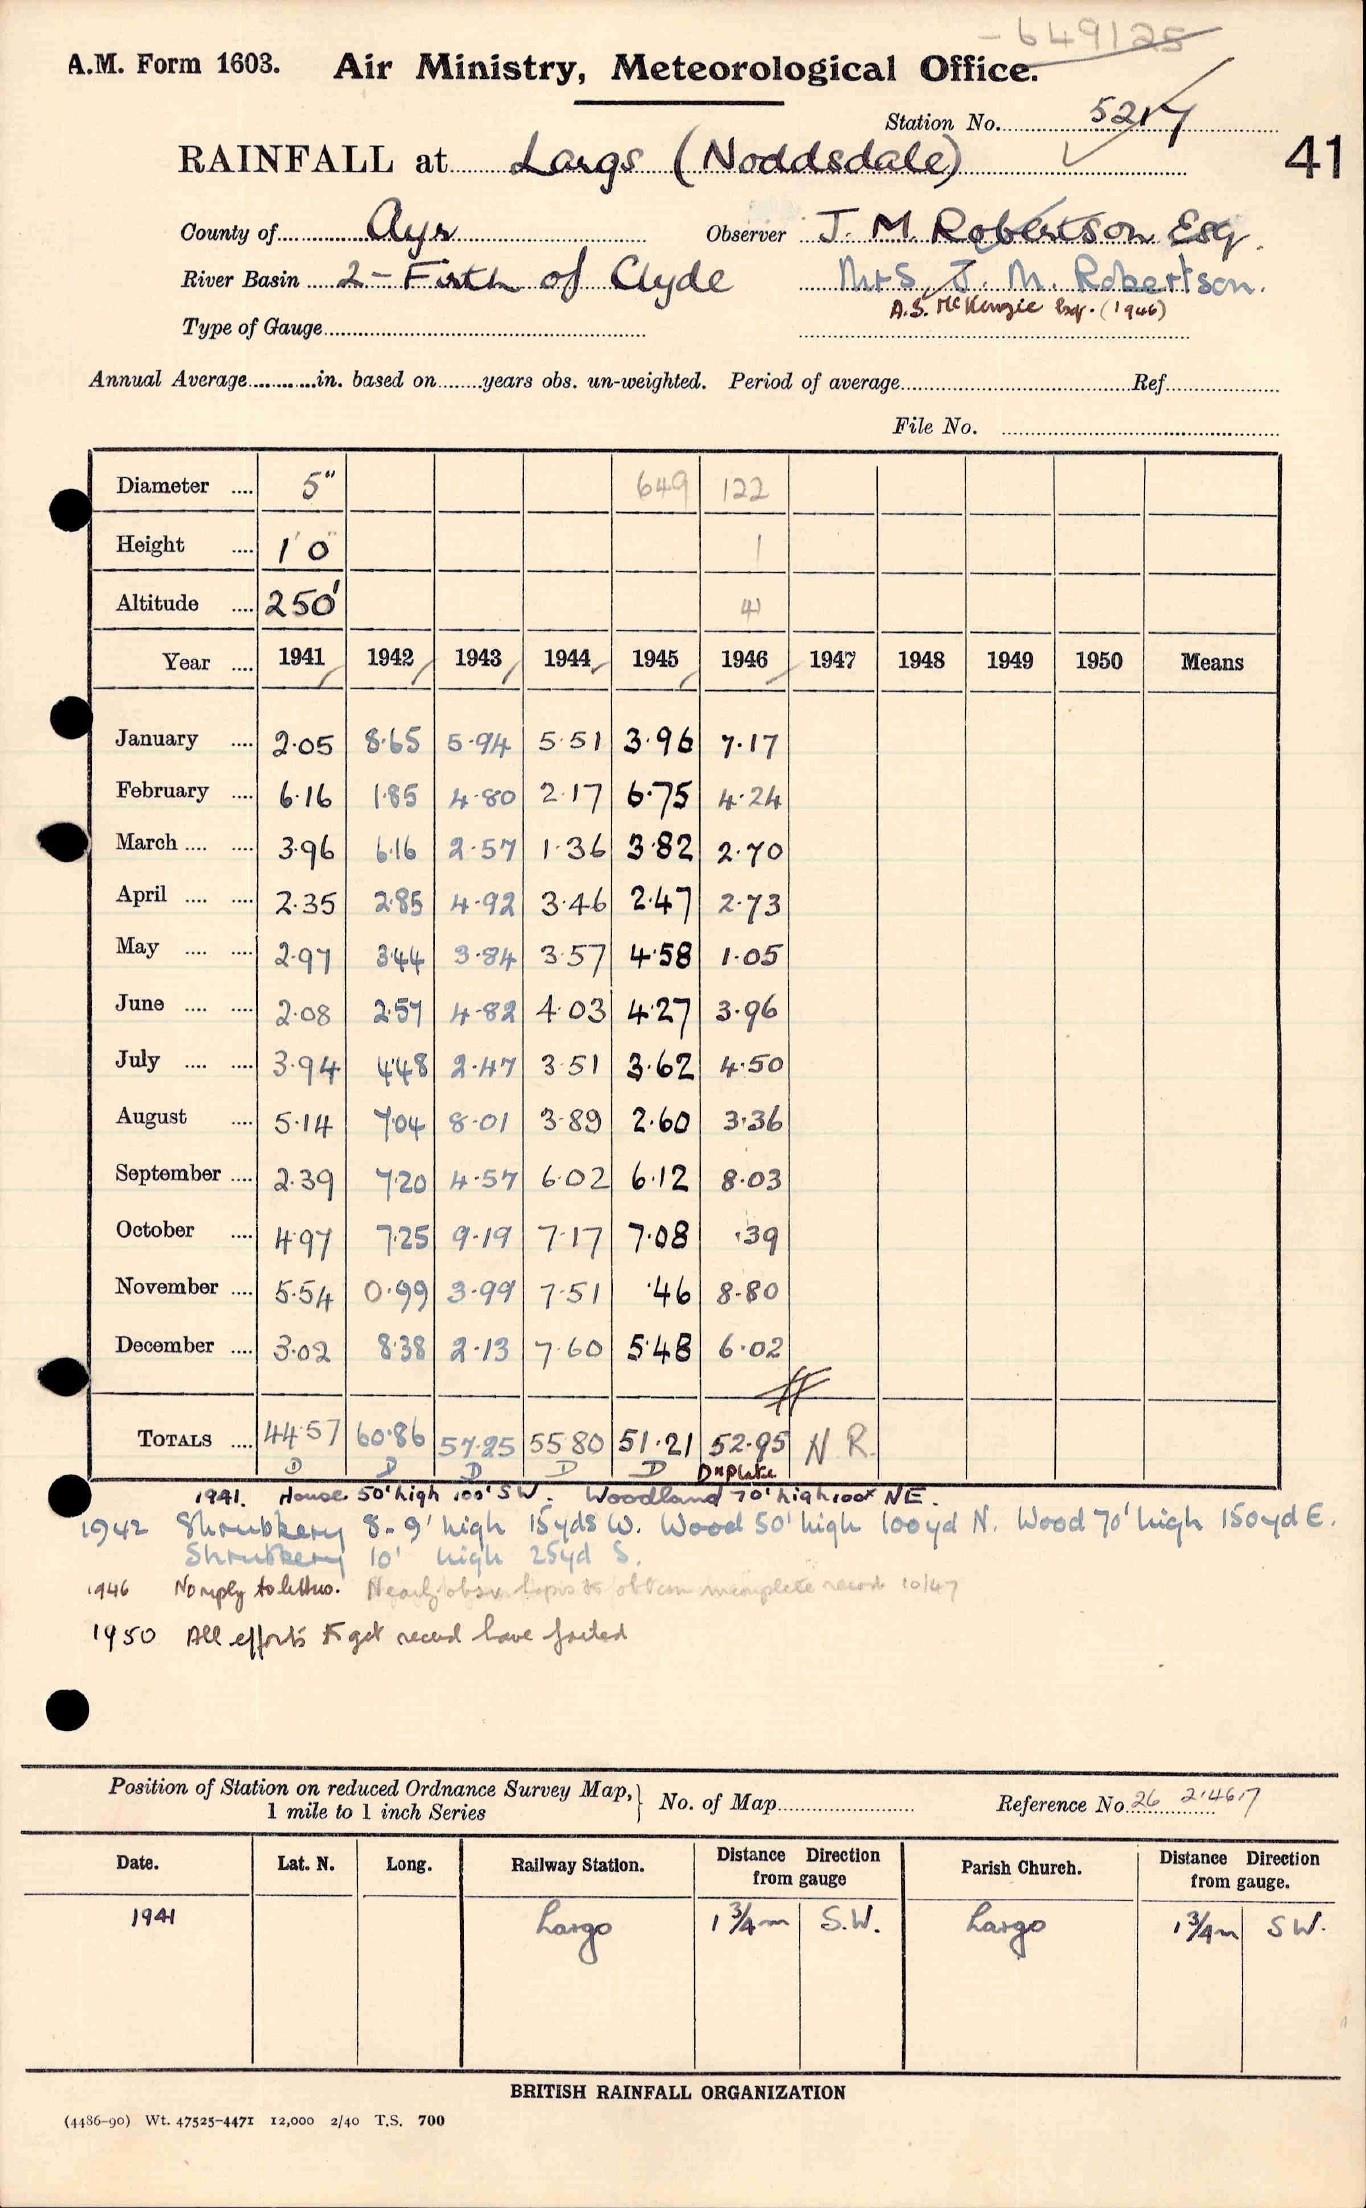 - 649125
A.M. Form 1603. Air Ministry, Meteorological Office.
Station No. 5217
RAINFALL at Largs (Noddsdale) 41
County of Ayr Observer J. M. Robertson Esq.
River Basin 2 - Firth of Clyde Mrs J. M. Robertson.
A.S. McKenzie Esq. (1946)
Type of Gauge
Annual Average in. based on years obs. un-weighted. Period of average Ref
File No.
Diameter .... 5" 649 122
Height .... 1' 0" 1
Altitude .... 250' 41
Year .... 1941 1942 1943 1944 1945 1946 1947 1948 1949 1950 Means
January .... 2.05 8.65 5.94 5.51 3.96 7.17
February .... 6.16 1.85 4.80 2.17 6.75 4.24
March .... .... 3.96 6.16 2.57 1.36 3.82 2.70
April .... .... 2.35 2.85 4.92 3.46 2.47 2.73
May .... .... 2.97 3.44 3.84 3.57 4.58 1.05
June .... .... 2.08 2.57 4.82 4.03 4.27 3.96
July .... .... 3.94 4.48 2.47 3.51 3.62 4.50
August .... 5.14 7.04 8.01 3.89 2.60 3.36
September .... 2.39 7.20 4.57 6.02 6.12 8.03
October .... 4.97 7.25 9.19 7.17 7.08 .39
November .... 5.54 0.99 3.99 7.51 .46 8.80
December .... 3.02 8.38 2.13 7.60 5.48 6.02
TOTALS .... 44.57 60.86 57.25 55.80 51.21 52.95 N.R.
D D D D D Duplicate
1941. House 50' high 100' SW. Woodland 70' high 100x NE.
1942 Shrubbery 8-9' high 15yds W. Wood 50' high 100yd N. Wood 70' high 150yd E.
Shrubbery 10' high 25yd S.
1946 No reply to letters. obtain incomplete record 10/47
1950 All efforts to get record have failed
Position of Station on reduced Ordnance Survey Map, 1 mile to 1 inch Series } No. of Map Reference No. 26 2.467
Date. Lat. N. Long. Railway Station. Distance Direction from gauge Parish Church. Distance Direction from gauge.
1941 Largs 1 3/4 m S.W. Largs 1 3/4 m SW.
BRITISH RAINFALL ORGANIZATION
(4486-90) Wt. 47525-4471 12,000 2/40 T.S. 700